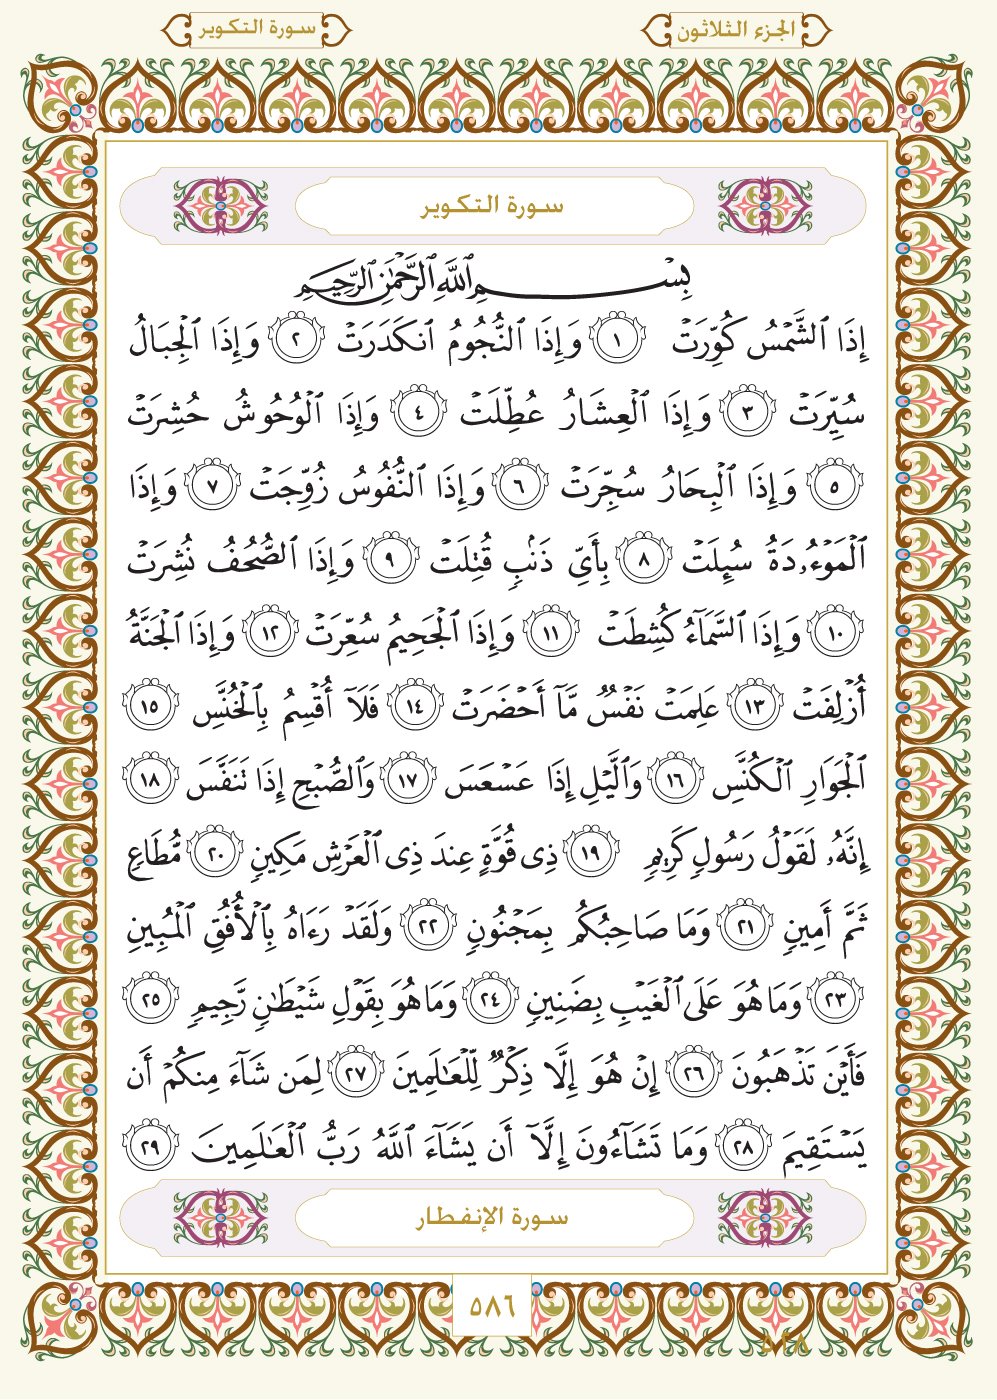 الجزء الثلاثون
سورة التكوير
سورة التكوير
بِسْمِ ٱللَّهِ ٱلرَّحْمَٰنِ ٱلرَّحِيمِ
إِذَا ٱلشَّمْسُ كُوِّرَتْ ١ وَإِذَا ٱلنُّجُومُ ٱنكَدَرَتْ ٢ وَإِذَا ٱلْجِبَالُ
سُيِّرَتْ ٣ وَإِذَا ٱلْعِشَارُ عُطِّلَتْ ٤ وَإِذَا ٱلْوُحُوشُ حُشِرَتْ
٥ وَإِذَا ٱلْبِحَارُ سُجِّرَتْ ٦ وَإِذَا ٱلنُّفُوسُ زُوِّجَتْ ٧ وَإِذَا
ٱلْمَوْءُۥدَةُ سُئِلَتْ ٨ بِأَىِّ ذَنۢبٍ قُتِلَتْ ٩ وَإِذَا ٱلصُّحُفُ نُشِرَتْ
١٠ وَإِذَا ٱلسَّمَآءُ كُشِطَتْ ١١ وَإِذَا ٱلْجَحِيمُ سُعِّرَتْ ١٢ وَإِذَا ٱلْجَنَّةُ
أُزْلِفَتْ ١٣ عَلِمَتْ نَفْسٌ مَّآ أَحْضَرَتْ ١٤ فَلَآ أُقْسِمُ بِٱلْخُنَّسِ ١٥
ٱلْجَوَارِ ٱلْكُنَّسِ ١٦ وَٱلَّيْلِ إِذَا عَسْعَسَ ١٧ وَٱلصُّبْحِ إِذَا تَنَفَّسَ ١٨
إِنَّهُۥ لَقَوْلُ رَسُولٍ كَرِيمٍ ١٩ ذِى قُوَّةٍ عِندَ ذِى ٱلْعَرْشِ مَكِينٍ ٢٠ مُّطَاعٍ
ثَمَّ أَمِينٍ ٢١ وَمَا صَاحِبُكُم بِمَجْنُونٍ ٢٢ وَلَقَدْ رَءَاهُ بِٱلْأُفُقِ ٱلْمُبِينِ
٢٣ وَمَا هُوَ عَلَى ٱلْغَيْبِ بِضَنِينٍ ٢٤ وَمَا هُوَ بِقَوْلِ شَيْطَٰنٍ رَّجِيمٍ ٢٥
فَأَيْنَ تَذْهَبُونَ ٢٦ إِنْ هُوَ إِلَّا ذِكْرٌ لِّلْعَٰلَمِينَ ٢٧ لِمَن شَآءَ مِنكُمْ أَن
يَسْتَقِيمَ ٢٨ وَمَا تَشَآءُونَ إِلَّآ أَن يَشَآءَ ٱللَّهُ رَبُّ ٱلْعَٰلَمِينَ ٢٩
سورة الإنفطار
٥٨٦